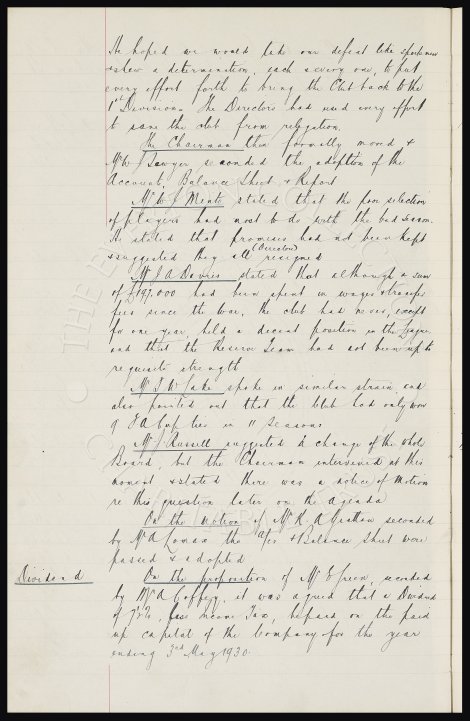 He hoped we would take our defeat like sportsmen
& shew a determination, each & every one, to put
every effort forth to bring the Club back to the
1st Division. The Directors had used every effort
to save the club from relegation.
The Chairman then formally moved &
Mr W J Sawyer seconded the adoption of the
Account, Balance Sheet & Report
Mr W J stated that the poor selection
of players had most to do with the bad season.
He stated that promises had not been kept
(Directors)
& suggested they all resigned
Mr J A Davies stated that although a sum
of £197.000 had been spent in wages & transfer
fees since the War, the club had never, except
for one year, held a decent position in the League
and that the Reserve Team had not been up to
requisite strength
Mr J W Lake spoke in similar strain, and
also pointed out that the Club had only won
9 F A Cup ties in 11 Seasons
Mr J Russell suggested a change of the whole
Board, but the Chairman intervened at this
moment & stated there was a notice of motion
re this question later on the Agenda
On the motion of Mr R. A seconded
by Mr A Lomax the a/cs & Balance Sheet were
passed & adopted
Dividend
On the proposition of Mr E Green, seconded
by Mr A Coffey, it was agreed that a Dividend
of 7½%, less Income Tax, be paid on the paid
up capital of the Company for the year
ending 3rd May 1930.